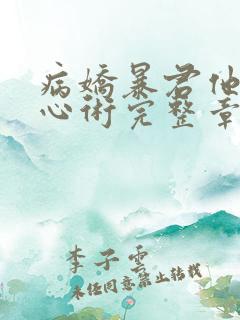 病嬌暴君他
心術完整章
李子雲
未經同意禁止轉載